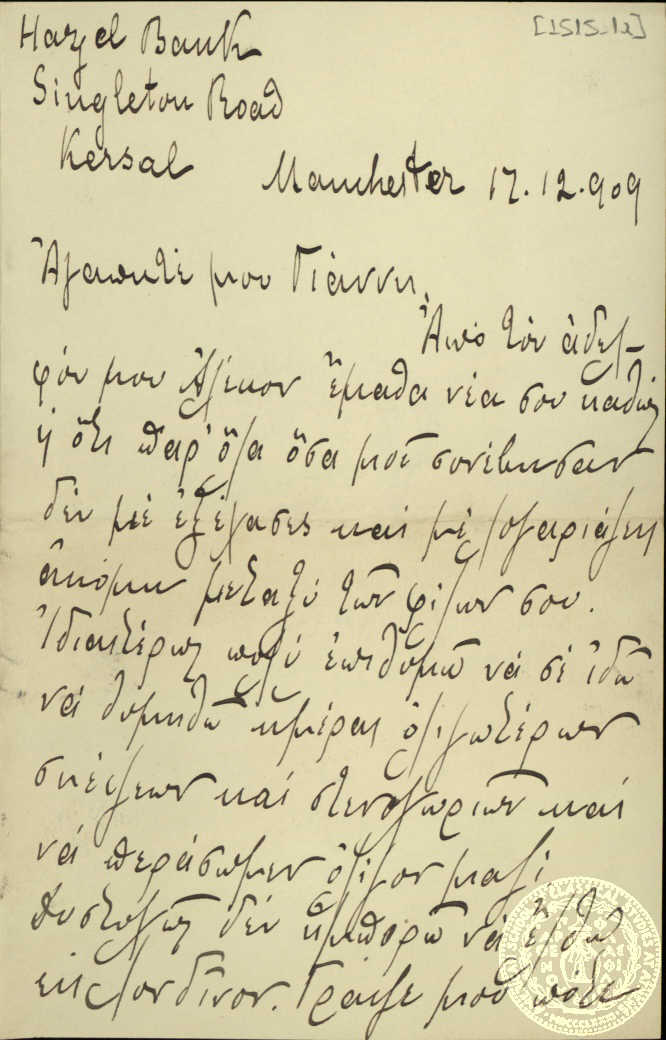 [1515-1α]
Hazel Bank
Singleton Road
Kersal Manchester 17.12.909
Ἀγαπητέ μου Γιάννη,
Ἀπὸ τὸν ἀδελ-
φόν μου Ἀλέκον ἔμαθα νέα σου καθὼς
ἡ ὅτι παρ' ὅλα ὅσα μοῦ συνέβησαν
δὲν μὲ ἐξέχασες καὶ μὲ λογαριάζεις
ἀκόμη μεταξὺ τῶν φίλων σου.
Ἰδιαιτέρως πολὺ ἐπιθυμῶ νὰ σὲ ἰδῶ
νὰ θυμηθῶ ἡμέρας ὀλιγωτέρων
σκέψεων καὶ στενοχωριῶν καὶ
νὰ περάσωμεν ὀλίγον μαζὶ
δυστυχῶς δὲν ἠμπορῶ νὰ ἔλθω
εἰς Λονδῖνον. Γράψε μου πότε